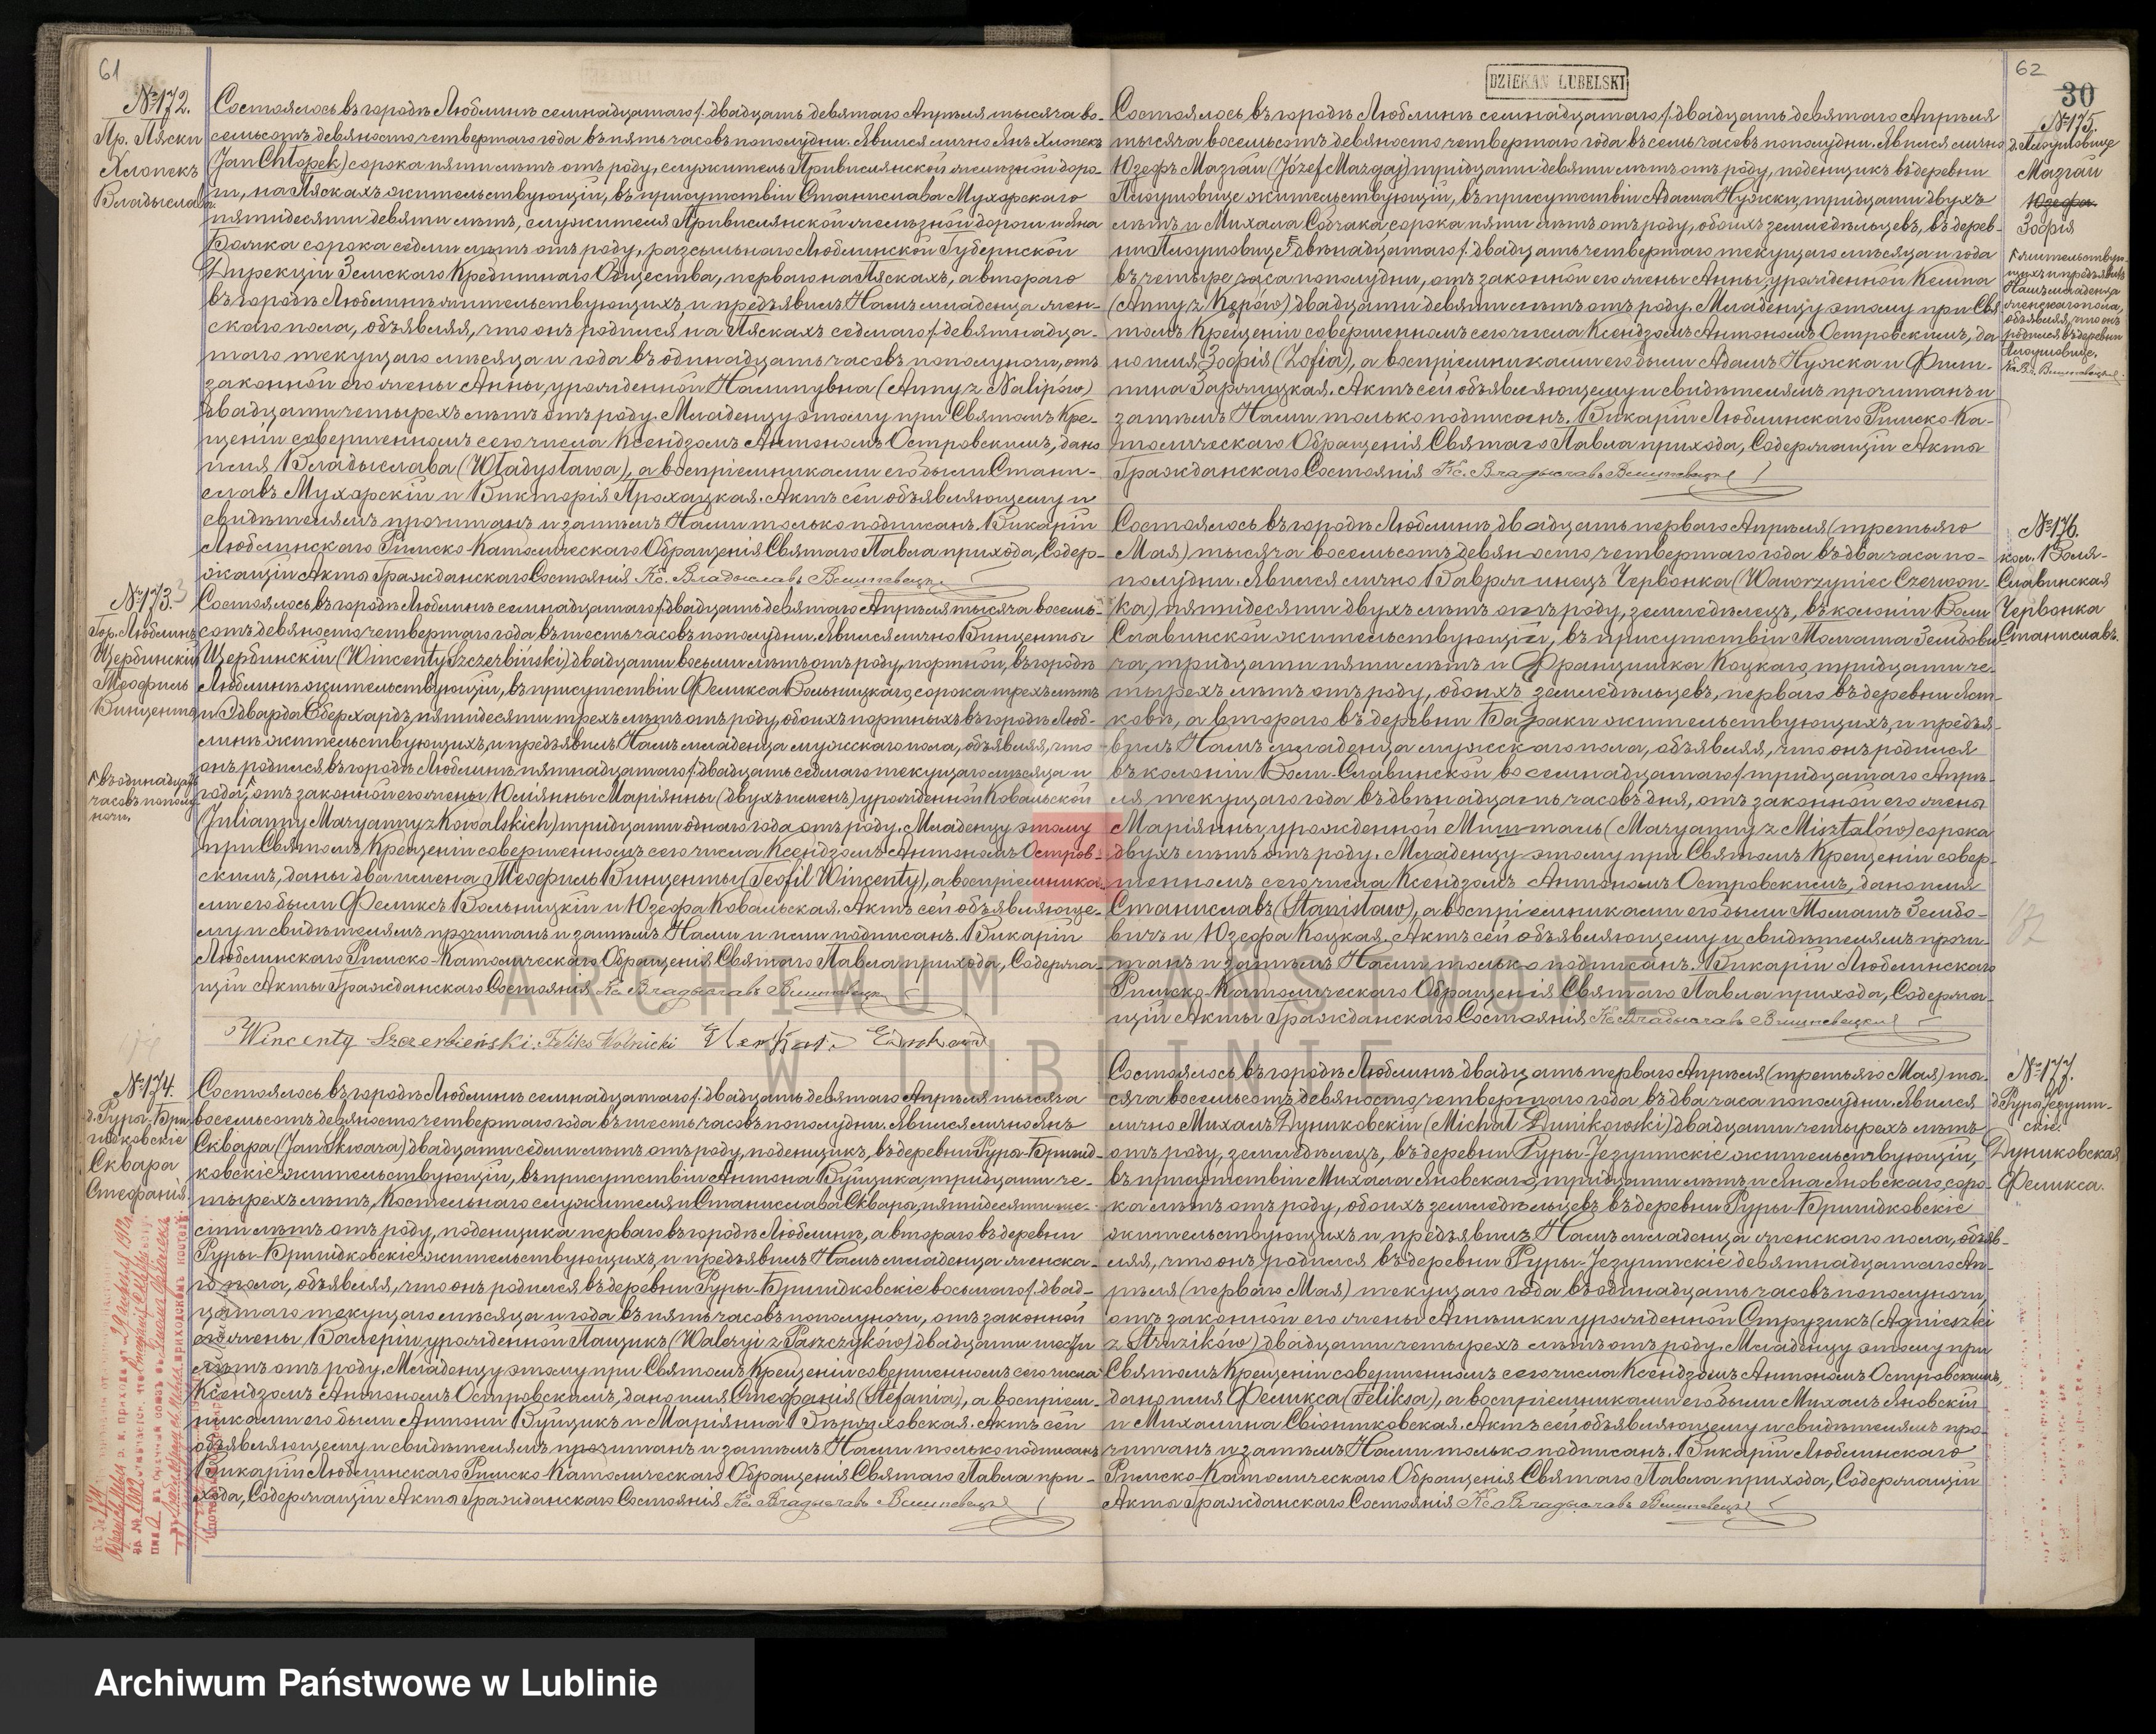 61
№172.
Пр. Пяски
Хлопекъ
Владыслава
Состоялось въ городѣ Люблинѣ семнадцатаго/двадцать девятаго Апрѣля тысяча во-
семьсотъ девяносто четвертаго года въ пять часовъ пополудни. Явился лично Янъ Хлопекъ
(Jan Chłopek) сорока пяти лѣтъ отъ роду, служитель Привислянской желѣзной доро-
ги, на Пяскахъ жительствующій, въ присутствіи Станислава Мухарскаго
пятидесяти девяти лѣтъ, служителя Привислянской желѣзной дороги и Яна
сорока седьми лѣтъ отъ роду, разсыльнаго Люблинской Губернской
Дирекціи Земскаго Кредитнаго Общества, перваго на Пяскахъ, а втораго
въ городѣ Люблинѣ жительствующихъ, и предъявилъ Намъ младенца жен-
скаго пола, объявляя, что онъ родился на Пяскахъ седьмаго/девятнадца-
таго текущаго мѣсяца и года въ одинадцать часовъ пополуночи, отъ
законной его жены Анны, урожденной Налипувна (Anny z Nalipów)
двадцати четырехъ лѣтъ отъ роду. Младенцу этому при Святомъ Кре-
щеніи совершенномъ сего числа Ксендзомъ Антономъ Островскимъ, дано
имя Владыслава (Władysława), а воспріемниками его были Стани-
славъ Мухарскій и Викторія Прохацкая. Актъ сей объявляющему и
свидѣтелямъ прочитанъ и затѣмъ Нами только подписанъ. Викарій
Люблинскаго Римско-Католическаго Обращенія Святаго Павла прихода, Содер-
жащій Акты Гражданскаго Состоянія Кс. Владыславъ
№173.
Гор. Люблинъ
Щербинскій
Теофиль
Винценты
Состоялось въ городѣ Люблинѣ семнадцатаго/двадцать девятаго Апрѣля тысяча восемь-
сотъ девяносто четвертаго года въ шесть часовъ пополудни. Явился лично Винценты
Щербинскій (Wincenty Szczerbiński) двадцати восьми лѣтъ отъ роду, портной, въ городѣ
Люблинѣ жительствующій, въ присутствіи Феликса Вольницкаго, сорока трехъ лѣтъ
и Эдварда Еберхардъ, пятидесяти трехъ лѣтъ отъ роду, обоихъ портныхъ въ городѣ Люб-
линѣ жительствующихъ, и предъявилъ Намъ младенца мужскаго пола, объявляя, что
онъ родился въ городѣ Люблинѣ пятнадцатаго/двадцать седьмаго текущаго мѣсяца и
въ одинадцать
часовъ полу-
ночи.
года, отъ законной его жены Юліянны Маріянны (двухъ именъ) урожденной Ковальской
(Julianny Maryanny z Kowalskich) тридцати однаго года отъ роду. Младенцу этому
при Святомъ Крещеніи совершенномъ сего числа Ксендзомъ Антономъ Остров-
скимъ, даны два имена Теофиль Винценты (Teofil Wincenty), а воспріемника-
ми его были Феликсъ Вольницкій и Юзефа Ковальская. Актъ сей объявляюще-
му и свидѣтелямъ прочитанъ и затѣмъ Нами и ими подписанъ. Викарій
Люблинскаго Римско-Католическаго Обращенія Святаго Павла прихода, Содержа-
щій Акты Гражданскаго Состоянія Кс. Владыславъ
Wincenty Szczerbieński. Feliks Wolnicki
№174.
д. Руры-Бри-
гидковскіе
Сквара
Стефанія
Состоялось въ городѣ Люблинѣ семнадцатаго/двадцать девятаго Апрѣля тысяча
восемьсотъ девяносто четвертаго года въ шесть часовъ пополудни. Явился лично Янъ
Сквара (Jan Skwara) двадцати седьми лѣтъ отъ роду, поденщикъ, въ деревни Руры-Бригид-
ковскіе жительствующій, въ присутствіи Антона Вуйцика, тридцати че-
тырехъ лѣтъ, костельнаго служителя и Станислава Сквары, пятидесяти ше-
сти лѣтъ отъ роду, поденщика перваго въ городѣ Люблинѣ, а втораго въ деревни
Руры-Бригидковскіе жительствующихъ, и предъявилъ Намъ младенца женска-
го пола, объявляя, что онъ родился въ деревни Руры-Бригидковскіе восьмаго/двад-
цатаго текущаго мѣсяца и года въ пять часовъ пополуночи, отъ законной
его жены Валеріи, урожденной Пащикъ (Waleryi z Paszczyków) двадцати шести
лѣтъ отъ роду. Младенцу этому при Святомъ Крещеніи совершенномъ сего числа
Ксендзомъ Антономъ Островскимъ, дано имя Стефанія (Stefania), а воспріем-
никами его были Антони Вуйцикъ и Маріянна Актъ сей
объявляющему и свидѣтелямъ прочитанъ и затѣмъ Нами только подписанъ
Викарій Люблинскаго Римско-Католическаго Обращенія Святаго Павла при-
хода, Содержащій Акты Гражданскаго Состоянія Кс. Владыславъ
DZIEKAN LUBELSKI
62
30
№175.
Мазгай
Юзефа
Зофія
Состоялось въ городѣ Люблинѣ семнадцатаго/двадцать девятаго Апрѣля
тысяча восемьсотъ девяносто четвертаго года въ семь часовъ пополудни. Явился лично
Юзефъ Мазгай (Józef Mazgaj) тридцати девяти лѣтъ отъ роду, поденщикъ въ деревни
жительствующій, въ присутствіи Адама Нужки, тридцати двухъ
лѣтъ и Михала Собчака сорока пяти лѣтъ отъ роду, обоихъ земледѣльцевъ, въ дерев-
ни двѣнадцатаго/двадцать четвертаго текущаго мѣсяца и года
въ четыре часа пополудни, отъ законной его жены Анны, урожденной Кемпа
(Anny z Kępów) двадцати девяти лѣтъ отъ роду. Младенцу этому при Свя-
томъ Крещеніи совершенномъ сего числа Ксендзомъ Антономъ Островскимъ, да-
но имя Зофія (Zofia), а воспріемниками его были Адамъ Нужка и Фили-
пина Заржицкая. Актъ сей объявляющему и свидѣтелямъ прочитанъ и
затѣмъ Нами только подписанъ. Викарій Люблинскаго Римско-Ка-
толическаго Обращенія Святаго Павла прихода, Содержащій Акты
Гражданскаго Состоянія Кс. Владыславъ
жительствую-
щихъ и предъявилъ
Намъ младенца
женскаго пола,
объявляя, что онъ
родился въ деревни
№176.
кол. Воля-
Славинская
Червонка
Станиславъ.
Состоялось въ городѣ Люблинѣ двадцать перваго Апрѣля (третьяго
Мая) тысяча восемьсотъ девяносто четвертаго года въ два часа по-
полудни. Явился лично Вавржинецъ Червонка (Wawrzyniec Czerwon-
ka) пятидесяти двухъ лѣтъ отъ роду, земледѣлецъ, въ колоніи Воли
Славинской жительствующій, въ присутствіи Томаша Зембови-
ча, тридцати пяти лѣтъ и Францишка Коцкаго, тридцати че-
тырехъ лѣтъ отъ роду, обоихъ земледѣльцевъ, перваго въ деревни Яст-
ковѣ, а втораго въ деревни Бараки жительствующихъ, и предъя-
вилъ Намъ младенца мужскаго пола, объявляя, что онъ родился
въ колоніи Воли-Славинской восемнадцатаго/тридцатаго Апрѣ-
ля текущаго года въ двѣнадцать часовъ дня, отъ законной его жены
Маріянны, урожденной Мишталь (Maryanny z Misztalów) сорока
двухъ лѣтъ отъ роду. Младенцу этому при Святомъ Крещеніи совер-
шенномъ сего числа Ксендзомъ Антономъ Островскимъ, дано имя
Станиславъ (Stanisław), а воспріемниками его были Томашъ Зембо-
вичъ и Юзефа Коцкая. Актъ сей объявляющему и свидѣтелямъ прочи-
танъ и затѣмъ Нами только подписанъ. Викарій Люблинскаго
Римско-Католическаго Обращенія Святаго Павла прихода, Содержа-
щій Акты Гражданскаго Состоянія Кс. Владыславъ
№177.
д. Руры-Іезуит-
скіе.
Дуниковская
Феликса.
Состоялось въ городѣ Люблинѣ двадцать перваго Апрѣля (третьяго Мая) ты-
сяча восемьсотъ девяносто четвертаго года въ два часа пополудни. Явился
лично Михалъ Дуниковскій (Michał Dunikowski) двадцати четырехъ лѣтъ
отъ роду, земледѣлецъ, въ деревни Руры-Іезуитскіе жительствующій,
въ присутствіи Михала Яновскаго, тридцати лѣтъ и Яна Яновскаго, соро-
ка лѣтъ отъ роду, обоихъ земледѣльцевъ въ деревни Руры-Бригидковскіе
жительствующихъ и предъявилъ Намъ младенца женскаго пола, объяв-
ляя, что онъ родился въ деревни Руры-Іезуитскіе девятнадцатаго Ап-
рѣля (перваго Мая) текущаго года въ одинадцать часовъ пополуночи,
отъ законной его жены Агнѣшки урожденной Струзикъ (Agnieszki
z Struzików) двадцати четырехъ лѣтъ отъ роду. Младенцу этому при
Святомъ Крещеніи совершенномъ сего числа Ксендзомъ Антономъ Островскимъ,
дано имя Феликса (Feliksa), а воспріемниками его были Михалъ Яновскій
и Михалина Свіонтковская. Актъ сей объявляющему и свидѣтелямъ про-
читанъ и затѣмъ Нами только подписанъ. Викарій Люблинскаго
Римско-Католическаго Обращенія Святаго Павла прихода, Содержащій
Акты Гражданскаго Состоянія Кс. Владыславъ
ARCHIWUM PAŃSTWOWE
W LUBLINIE
Archiwum Państwowe w Lublinie